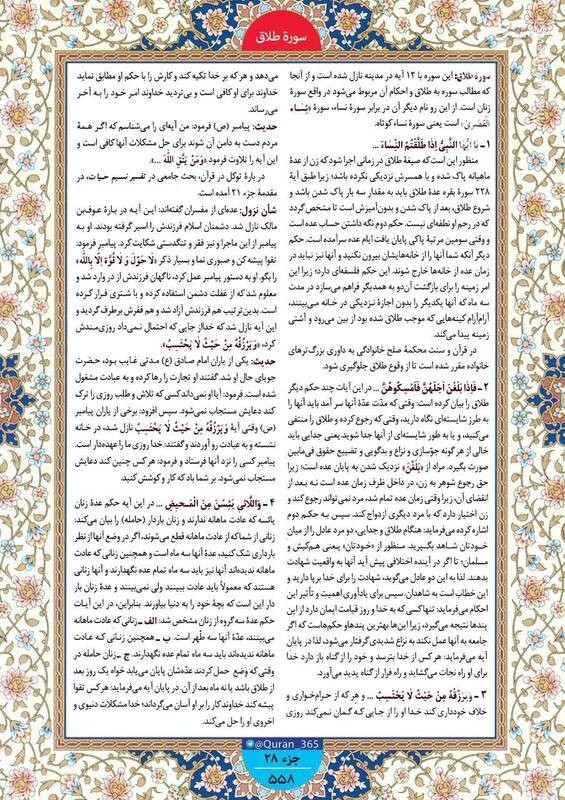 سورهٔ طلاق
سوره طلاق: این سوره با ۱۲ آیه در مدینه نازل شده است و از آنجا
که مطالب سوره به طلاق و احکام آن مربوط می‌شود در واقع سورهٔ
زنان است. از این رو نام دیگر آن در برابر سورهٔ نساء، سورهٔ «نِساء
القُصرىٰ» است یعنی سورهٔ نساء کوتاه.
۱ – یَا أَیُّهَا النَّبِیُّ إِذَا طَلَّقْتُمُ النِّسَاءَ ...
منظور این است که صیغهٔ طلاق در زمانی اجرا شود که زن از عدهٔ
ماهیانه پاک شده و با همسرش نزدیکی نکرده باشد؛ زیرا طبق آیهٔ
۲۲۸ سورهٔ بقره عدهٔ طلاق باید به مقدار سه بار پاک شدن باشد و
شروع طلاق، بعد از پاک شدن و بدون آمیزش است تا مشخص گردد
که در رحم او نطفه‌ای نیست. حکم دوم نگه داشتن حساب عده است
و وقتی سومین مرتبهٔ پاکی پایان یافت ایام عده سرآمده است. حکم
دیگر آنکه شما آنها را از خانه‌هایشان بیرون نکنید و آنها نیز نباید در
زمان عده از خانه‌ها خارج شوند. این حکم فلسفه‌ای دارد؛ زیرا این
امر زمینه را برای بازگشت آن دو به همدیگر فراهم می‌سازد در مدت
سه ماه که آنها یکدیگر را بدون اجازهٔ نزدیکی در خانه می‌بینند،
آرام آرام کینه‌هایی که موجب طلاق شده بود از بین می‌رود و آشتی
زمینه پیدا می‌کند.
در قرآن و سنت محکمهٔ صلح خانوادگی به داوری بزرگ‌ترهای
خانواده مقرر شده است تا از وقوع طلاق جلوگیری شود.
۲ – فَإِذَا بَلَغْنَ أَجَلَهُنَّ فَأَمْسِكُوهُنَّ ... در این آیات چند حکم دیگر
طلاق را بیان کرده است: وقتی که مدّت عدّهٔ آنها سر آمد باید آنها را
به طرز شایسته‌ای نگاه دارید، وقتی که رجوع کرده و طلاق را منتفی
می‌کنید، و یا به طور شایسته‌ای از آنها جدا شوید. یعنی جدایی باید
خالی از هر گونه جوّسازی و نزاع و بدگویی و تضییع حقوق فی‌مابین
صورت بگیرد. مراد از «بَلَغْنَ» نزدیک شدن به پایان عده است؛ زیرا
حق رجوع شوهر به زن، در داخل ظرف زمان عده است نه بعد از
انقضای آن، زیرا وقتی زمان عده تمام شد، مرد نمی‌تواند رجوع کند و
زن اختیار دارد که با مرد دیگری ازدواج کند. سپس به حکم دوم
اشاره کرده می‌فرماید: هنگام طلاق و جدایی، دو مرد عادل را از میان
خودتان شاهد بگیرید. منظور از «خودتان» یعنی هم‌کیش و
مسلمان؛ تا اگر در آینده اختلافی پیش آید آنها به واقعیت شهادت
بدهند. لذا به این دو عادل می‌گوید، شهادت را برای خدا برپا دارید و
این خطاب است به شاهدان. سپس برای یادآوری اهمیت و تأثیر این
احکام می‌فرماید: تنها کسی که به خدا و روز قیامت ایمان دارد از این
پندها نتیجه می‌گیرد، زیرا این‌ها بهترین پندها و حکم‌هاست که اگر
جامعه به آنها عمل نکند به نزاع شدیدی گرفتار می‌شود، لذا در پایان
آیه می‌فرماید: هر کس از خدا بترسد و خود را از گناه باز دارد خدا
برای او راه نجات می‌گشاید و راه فرار از گناه پدید می‌آورد.
۳ – وَیَرْزُقْهُ مِنْ حَیْثُ لَا یَحْتَسِبُ ... و هر که از حرام‌خواری و
خلاف خودداری کند خدا او را از جایی که گمان نمی‌کند روزی
می‌دهد، و هر که بر خدا تکیه کند و کارش را با حکم او مطابق نماید
خداوند برای او کافی است و بی‌تردید خداوند امر خود را به آخر
می‌رساند.
حدیث: پیامبر (ص) فرمود: من آیه‌ای را می‌شناسم که اگر همهٔ
مردم دست به دامن آن شوند برای حل مشکلات آنها کافی است و
این آیه را تلاوت فرمود «وَمَنْ یَتَّقِ اللَّهَ ...».
در بارهٔ توکل در قرآن، بحث جامعی در تفسیر نسیم حیات، در
مقدمهٔ جزء ۲۱ آمده است.
شأن نزول: عده‌ای از مفسران گفته‌اند: این آیه در بارهٔ عوف‌بن
مالک نازل شد. دشمنان اسلام فرزندش را اسیر گرفته بودند. او به
پیامبر از این ماجرا و نیز فقر و تنگدستی شکایت کرد. پیامبر فرمود:
تقوا پیشه کن و صبوری نما و بسیار ذکر «لَا حَوْلَ وَ لَا قُوَّةَ إِلَّا بِاللَّهِ»
را بگو. او به دستور پیامبر عمل کرد، ناگهان فرزندش از در وارد شد و
معلوم شد که از غفلت دشمن استفاده کرده و با شتری فرار کرده
است. بدین ترتیب هم فرزندش آزاد شد و هم فقرش برطرف گردید و
این آیه نازل شد که خدا از جایی که احتمال نمی‌داد روزی‌مندش
کرد، «وَیَرْزُقْهُ مِنْ حَیْثُ لَا یَحْتَسِبُ».
حدیث: یکی از یاران امام صادق (ع) مدتی غایب بود، حضرت
جویای حال او شد. گفتند او تجارت را رها کرده و به عبادت مشغول
شده است. فرمود: آیا او نمی‌داند کسی که تلاش و طلب روزی را ترک
کند دعایش مستجاب نمی‌شود. سپس افزود: برخی از یاران پیامبر
(ص) وقتی آیهٔ وَیَرْزُقْهُ مِنْ حَیْثُ لَا یَحْتَسِبُ نازل شد، در خانه
نشسته و به عبادت رو آوردند و گفتند: خدا روزی ما را عهده‌دار است.
پیامبر کسی را نزد آنها فرستاد و فرمود: هر کس چنین کند دعایش
مستجاب نمی‌شود. بر شما باد که کار و کوشش کنید.
۴ – وَاللَّائِی یَئِسْنَ مِنَ الْمَحِیضِ ... در این آیه حکم عدهٔ زنان
یائسه که عادت ماهانه ندارند و زنان باردار (حامله) را بیان می‌کند:
زنانی از شما که از عادت ماهانه قطع می‌شوند، اگر در وضع آنها از نظر
بارداری شک کنید، عدهٔ آنها سه ماه است و همچنین زنانی که عادت
ماهانه ندیده‌اند آنها نیز باید سه ماه تمام عده نگهدارند و آنها زنانی
هستند که معمولاً باید عادت ببینند ولی نمی‌بینند و عدهٔ زنان بار
دار این است که بچهٔ خود را به دنیا بیاورند. بنابراین، در این آیات
حکم عدهٔ سه گروه از زنان مشخص شد: الف ــ زنانی که عادت ماهانه
می‌بینند، عدّهٔ آنها سه طُهر است. ب ــ همچنین زنانی که عادت
ماهانه ندیده‌اند باید سه ماه تمام عده نگهدارند. ج ــ زنان حامله در
وقتی که وضع حمل کردند عدّه‌شان پایان می‌یابد خواه یک روز بعد
از طلاق باشد یا نه ماه بعد از آن. در پایان آیه می‌فرماید: هر کس تقوا
پیشه کند خداوند کار را بر او آسان می‌گرداند؛ خدا مشکلات دنیوی و
اخروی او را حل می‌کند.
@Quran_365
جزء ۲۸
۵۵۸